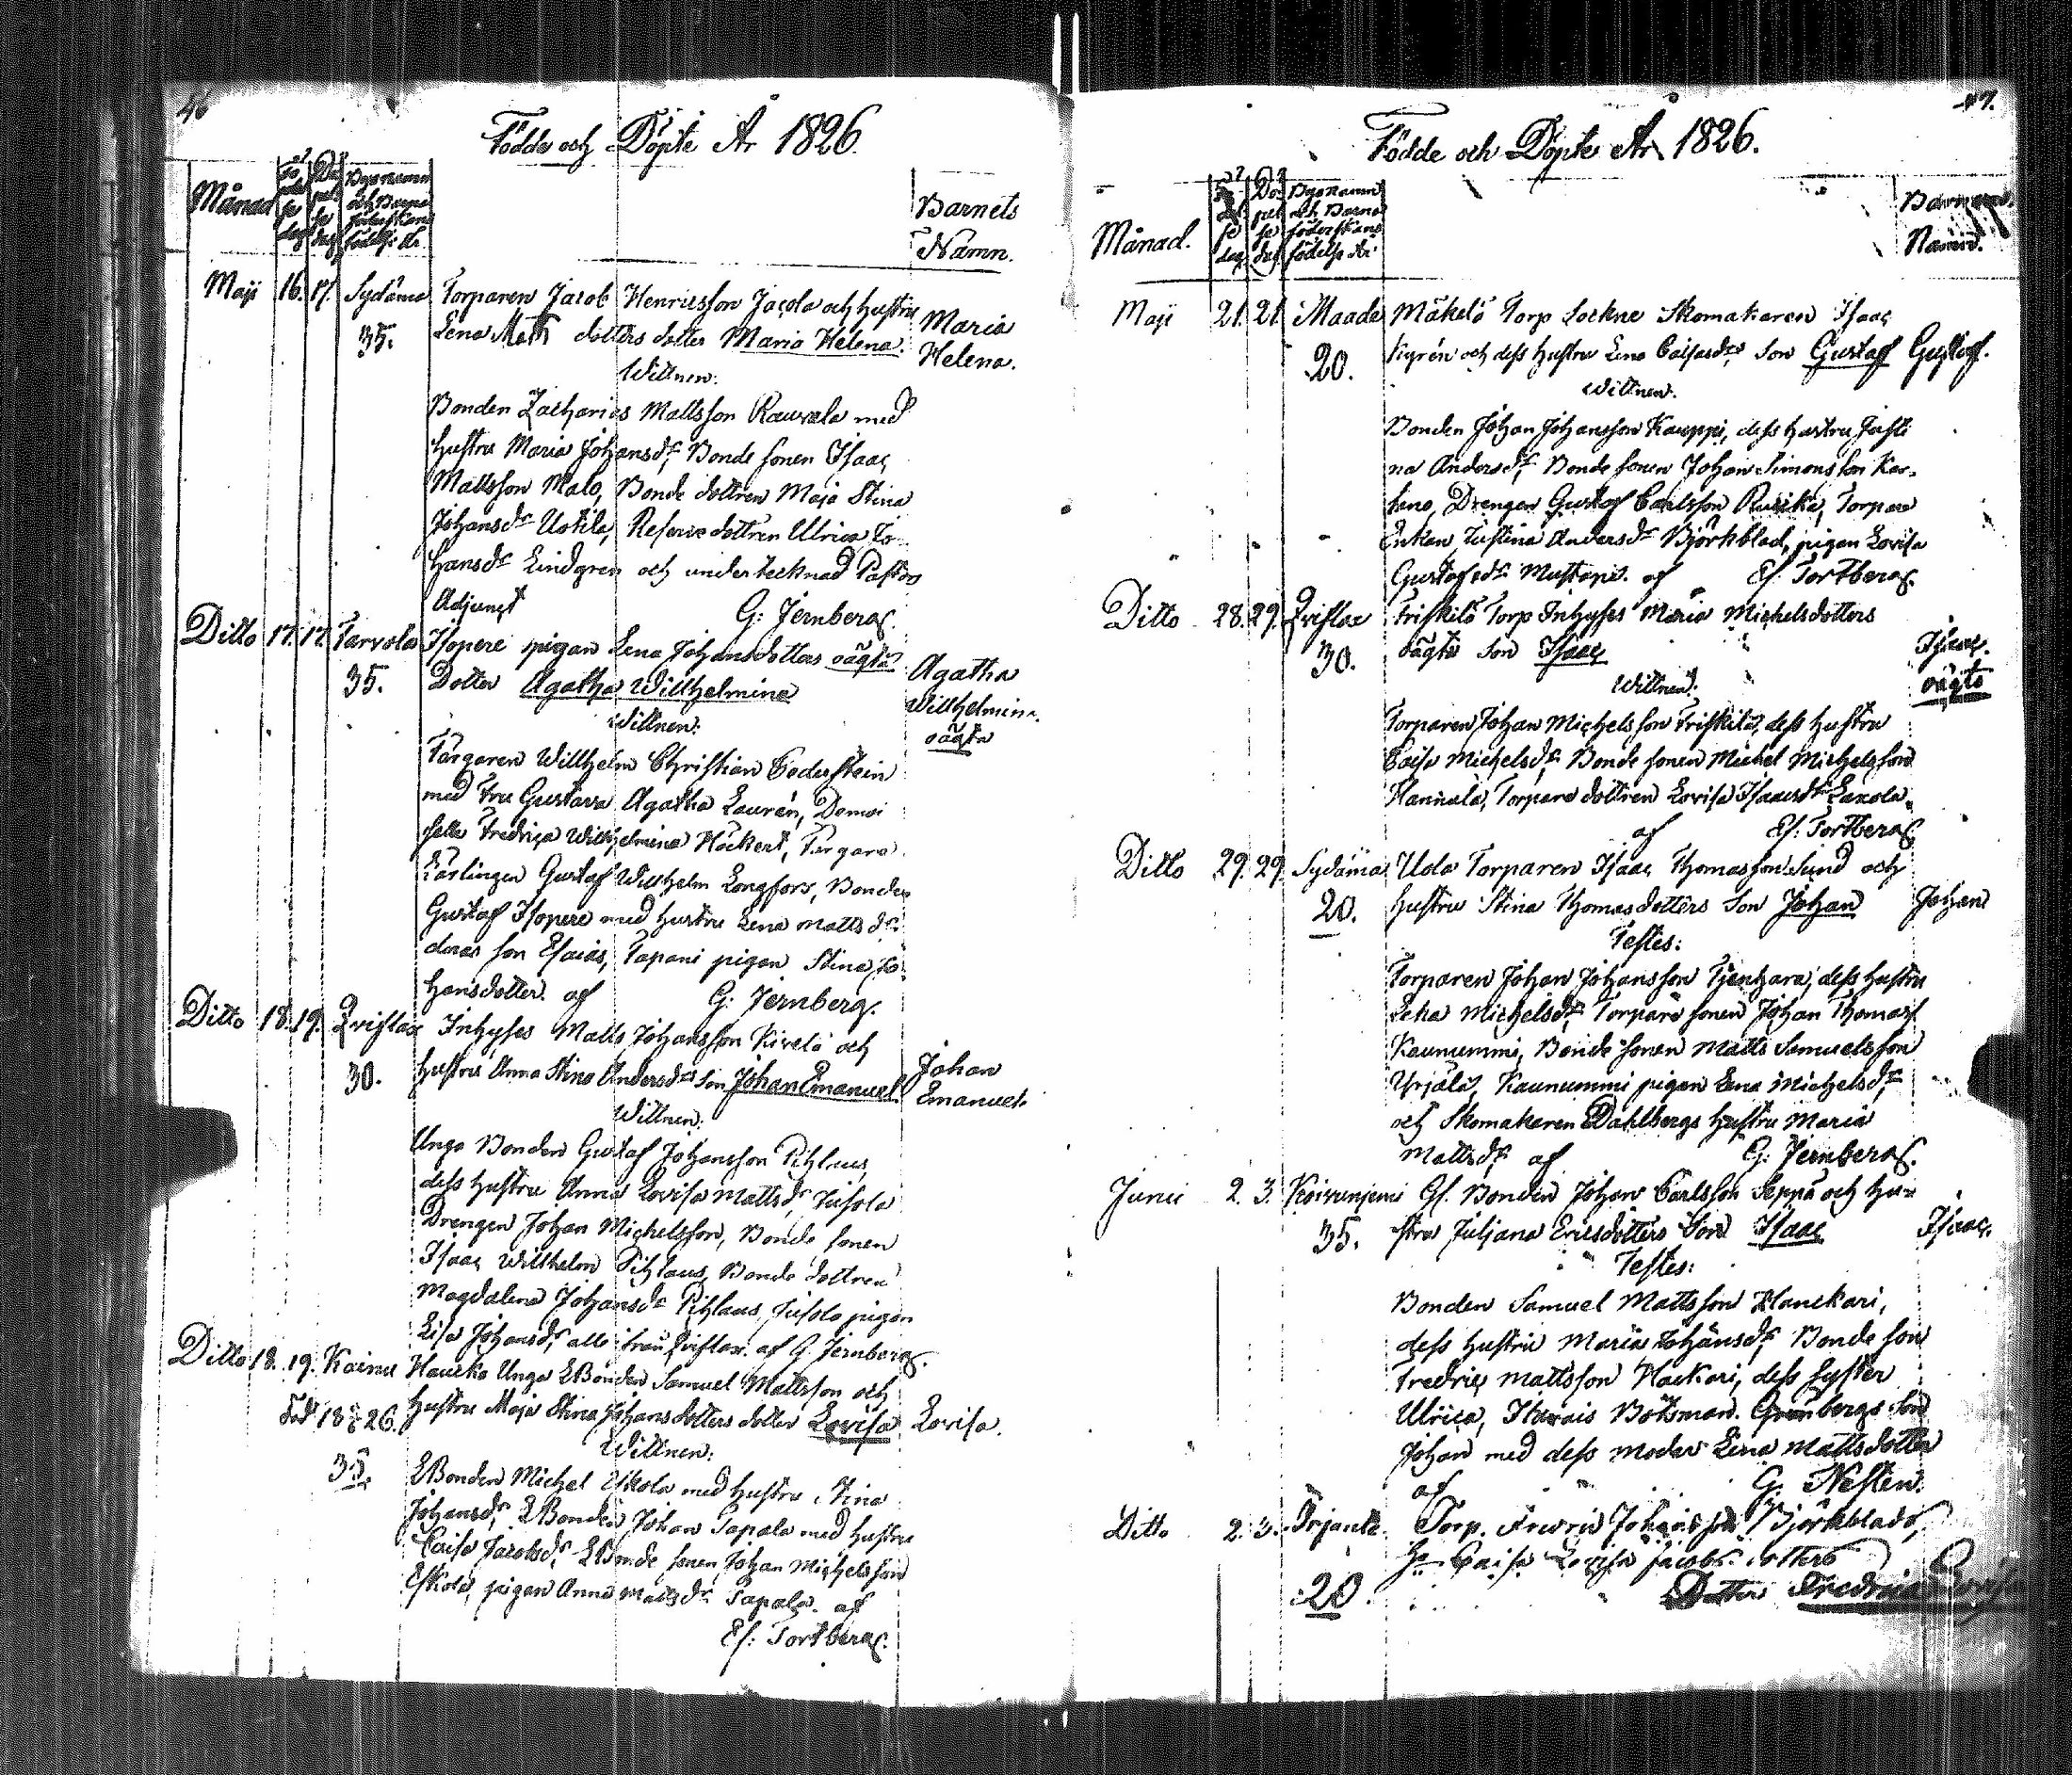 46
Födde och Döpte År 1826.
Månad Fö del se dag Dö pel se dag Bynamn och Barna föderskans födelse år. Barnets Namn.
Maji 16. 17. Sydäma Torparen Jacob Henricsson Jacola och hustru
35. Lena Matts dotters dotter Maria Helena. Maria Helena.
Wittnen:
Bonden Zacharias Mattsson Rauvala med
hustru Maria Johansdr, Bonde sonen Isaac
Mattsson Malo, Bonde dottren Maja Stina
Johansdr Uotila, Reserve dottren Ulrica Jo
hansdr Lindgren och undertecknad Pastors
Adjunct G: Jernberg.
Ditto 17. 17. Tarvola Isopere pigan Lena Johansdotters oägta
35. Dotter Agatha Willhelmina Agatha Willhelmina oägta
Wittnen:
Färgaren Willhelm Christian Caderstein
med Fru Gustava Agatha Laurén, Demoi
selle Fredrica Willhelmina Höckert, Färgare
Lärlingen Gustaf Willhelm Longfors, Bonden
Gustaf Isopere med hustru Lena Mattsdr
deras son Esaias, Tapani pigan Stina Jo
hansdotter. af G: Jernberg.
Ditto 18. 19. Qviflax Inhyses Matts Johansson Kivelä och
30. hustru Anna Stina Andersdrs son Johan Emanuel Johan Emanuel.
Wittnen:
Unga Bonden Gustaf Johansson Pihlaus,
dess hustru Anna Lovisa Mattsdr, Jusola
Drengen Johan Michelsson, Bonde sonen
Isaac Willhelm Pihlaus, Bonde dottren
Magdalena Johansdr Pihlaus, Jusola pigan
Lisa Johansdr, alla från Qviflax. af G. Jernberg.
Ditto 18. 19. Kainu Haucka Unga EBonden Samuel Mattsson och
Föd 18 26. hustru Maja Stina Johansdotters dotter Lovisa Lovisa.
Wittnen:
35. EBonden Michel Eskola med hustru Stina
Johansdr, EBonden Johan Papala med hustru
Caisa Jacobsdr, EBonde sonen Johan Michelsson
Eskola, pigan Anna Mattsdr Papala. af
Es: Tortberg.
47.
Födde och Döpte År 1826.
Månad. Fö del se dag Dö pel se dag Bynamn och Barna föderskans födelse år Barnets Namn.
Maji 21. 21. Maade Mäkelä Torp Sockne Skomakaren Isaac
20. Kyrén och dess hustru Lena Caisasdrs son Gustaf Gustaf.
Wittnen.
Bonden Johan Johansson Kauppi, dess hustru Justi
na Andersdr, Bonde sonen Johan Simonsson Kar-
hano, Drengen Gustaf Carlsson Rusika, Torpare
Enkan Justina Andersdr Björkblad, pigan Lovisa
Gustafsdr Mustapä. af Es. Tortberg.
Ditto 28. 29. Qviflax Friskilä Torp Inhyses Maria Michelsdotters
30. oägta son Isaac Isaac. oägta
Wittnen:
Torparen Johan Michelsson Friskilä, dess hustru
Caisa Michelsdr, Bonde sonen Michel Michelsson
Hannula, Torpare dottren Lovisa Isaacsdr Laxola.
af Es: Tortberg.
Ditto 29. 29. Sydäma Uola Torparen Isaac Thomasson Sund och
20. hustru Stina Thomasdotters son Johan Johan
Testes:
Torparen Johan Johansson Tienhara, dess hustru
Lena Michelsdr, Torpare sonen Johan Thomass.
Kaunummi, Bonde sonen Matts Samuelsson
Yrjälä, Kaunummi pigan Lena Michelsdr,
och Skomakaren Dahlbergs hustru Maria
Mattsdr. af G: Jernberg.
Junii 2. 3. Koivunjemi Gl. Bonden Johan Carlsson Seppä och hu-
35. stru Juljana Ericsdotters Son Isaac Isaac.
Testes:
Bonden Samuel Mattsson Hanckari,
dess hustru Maria Johansdr, Bonde son
Fredric Mattsson Hackari, dess syster
Ulrica, Båtsman Grönbergs son
Johan med dess moder Lena Mattsdotter
af G. Nesten.
Ditto 2. 3. Torp. Fredric Johansson Björkblads,
20. hu Caisa Lovisa Jacobs dotters
Dotter Fredrica Lovisa